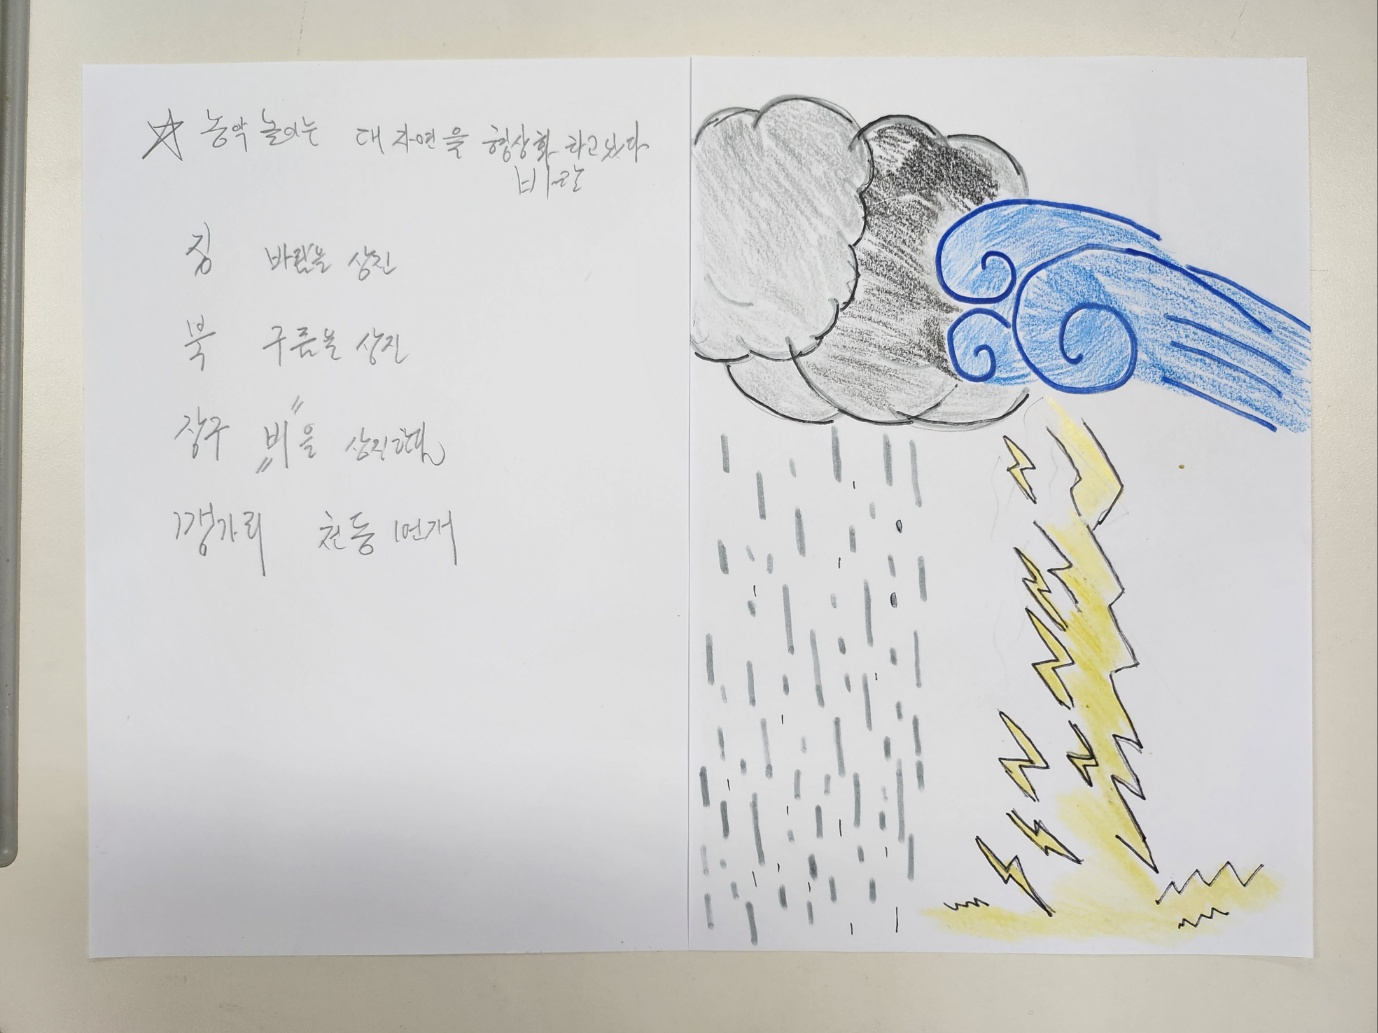 ☆ 농악 놀이는 대 자연을 형상화 하고있다
징 바람을 상진
북 구름을 상진
장구 "비"을 상징한다
꽹가리 천둥 번개